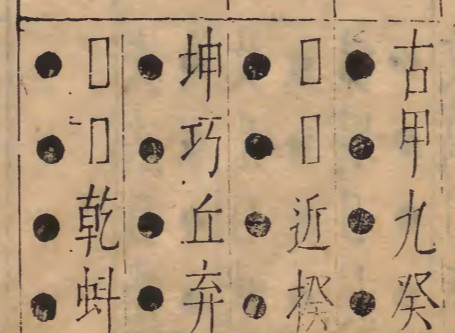 古甲九癸
●●●●
□□近揆
●●●●
坤巧丘弃
●●●●
□□乾蚪
●●●●